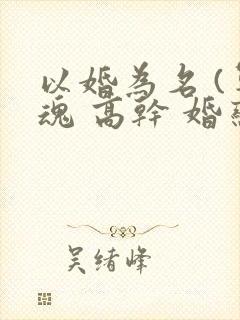 以婚為名(
魂 高幹 婚
吴绪峰